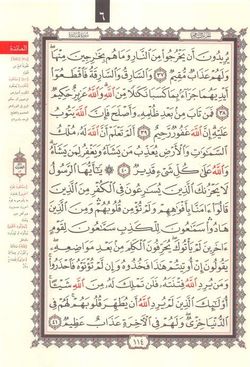 ٦
المائدة
يُرِيدُونَ أَن يَخْرُجُوا مِنَ النَّارِ وَمَا هُم بِخَارِجِينَ مِنْهَا
وَلَهُمْ عَذَابٌ مُّقِيمٌ ٣٧ وَالسَّارِقُ وَالسَّارِقَةُ فَاقْطَعُوا
أَيْدِيَهُمَا جَزَاءً بِمَا كَسَبَا نَكَالًا مِّنَ اللَّهِ وَاللَّهُ عَزِيزٌ حَكِيمٌ
٣٨ فَمَن تَابَ مِن بَعْدِ ظُلْمِهِ وَأَصْلَحَ فَإِنَّ اللَّهَ يَتُوبُ
عَلَيْهِ إِنَّ اللَّهَ غَفُورٌ رَّحِيمٌ ٣٩ أَلَمْ تَعْلَمْ أَنَّ اللَّهَ لَهُ مُلْكُ
السَّمَاوَاتِ وَالْأَرْضِ يُعَذِّبُ مَن يَشَاءُ وَيَغْفِرُ لِمَن يَشَاءُ
وَاللَّهُ عَلَىٰ كُلِّ شَيْءٍ قَدِيرٌ ٤٠ يَا أَيُّهَا الرَّسُولُ
لَا يَحْزُنكَ الَّذِينَ يُسَارِعُونَ فِي الْكُفْرِ مِنَ الَّذِينَ
قَالُوا آمَنَّا بِأَفْوَاهِهِمْ وَلَمْ تُؤْمِن قُلُوبُهُمْ وَمِنَ الَّذِينَ
هَادُوا سَمَّاعُونَ لِلْكَذِبِ سَمَّاعُونَ لِقَوْمٍ
آخَرِينَ لَمْ يَأْتُوكَ يُحَرِّفُونَ الْكَلِمَ مِن بَعْدِ مَوَاضِعِهِ
يَقُولُونَ إِنْ أُوتِيتُمْ هَٰذَا فَخُذُوهُ وَإِن لَّمْ تُؤْتَوْهُ فَاحْذَرُوا
وَمَن يُرِدِ اللَّهُ فِتْنَتَهُ فَلَن تَمْلِكَ لَهُ مِنَ اللَّهِ شَيْئًا
أُولَٰئِكَ الَّذِينَ لَمْ يُرِدِ اللَّهُ أَن يُطَهِّرَ قُلُوبَهُمْ لَهُمْ فِي
الدُّنْيَا خِزْيٌ وَلَهُمْ فِي الْآخِرَةِ عَذَابٌ عَظِيمٌ ٤١
١١٤